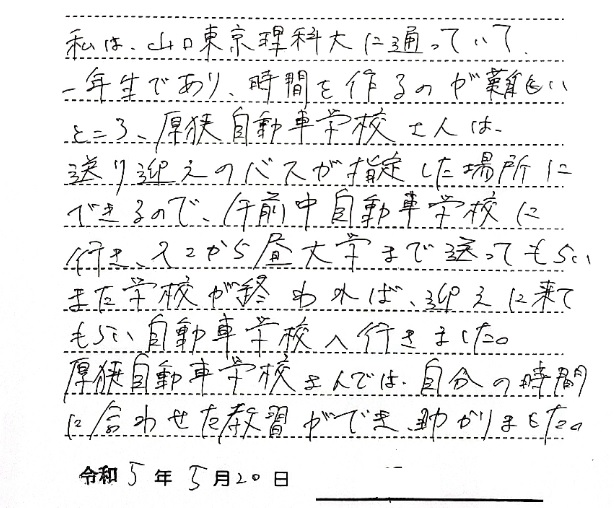 私は、山口東京理科大に通っていて、
一年生であり、時間を作るのが難しい
ところ、厚狭自動車学校さんは、
送り迎えのバスが指定した場所に
できるので、午前中自動車学校に
行き、そこから昼大学まで送ってもらい
また学校が終われば、迎えに来て
もらい自動車学校へ行きました。
厚狭自動車学校さんでは、自分の時間
に合わせた教習ができ、助かりました。
令和 5 年 5 月 20 日